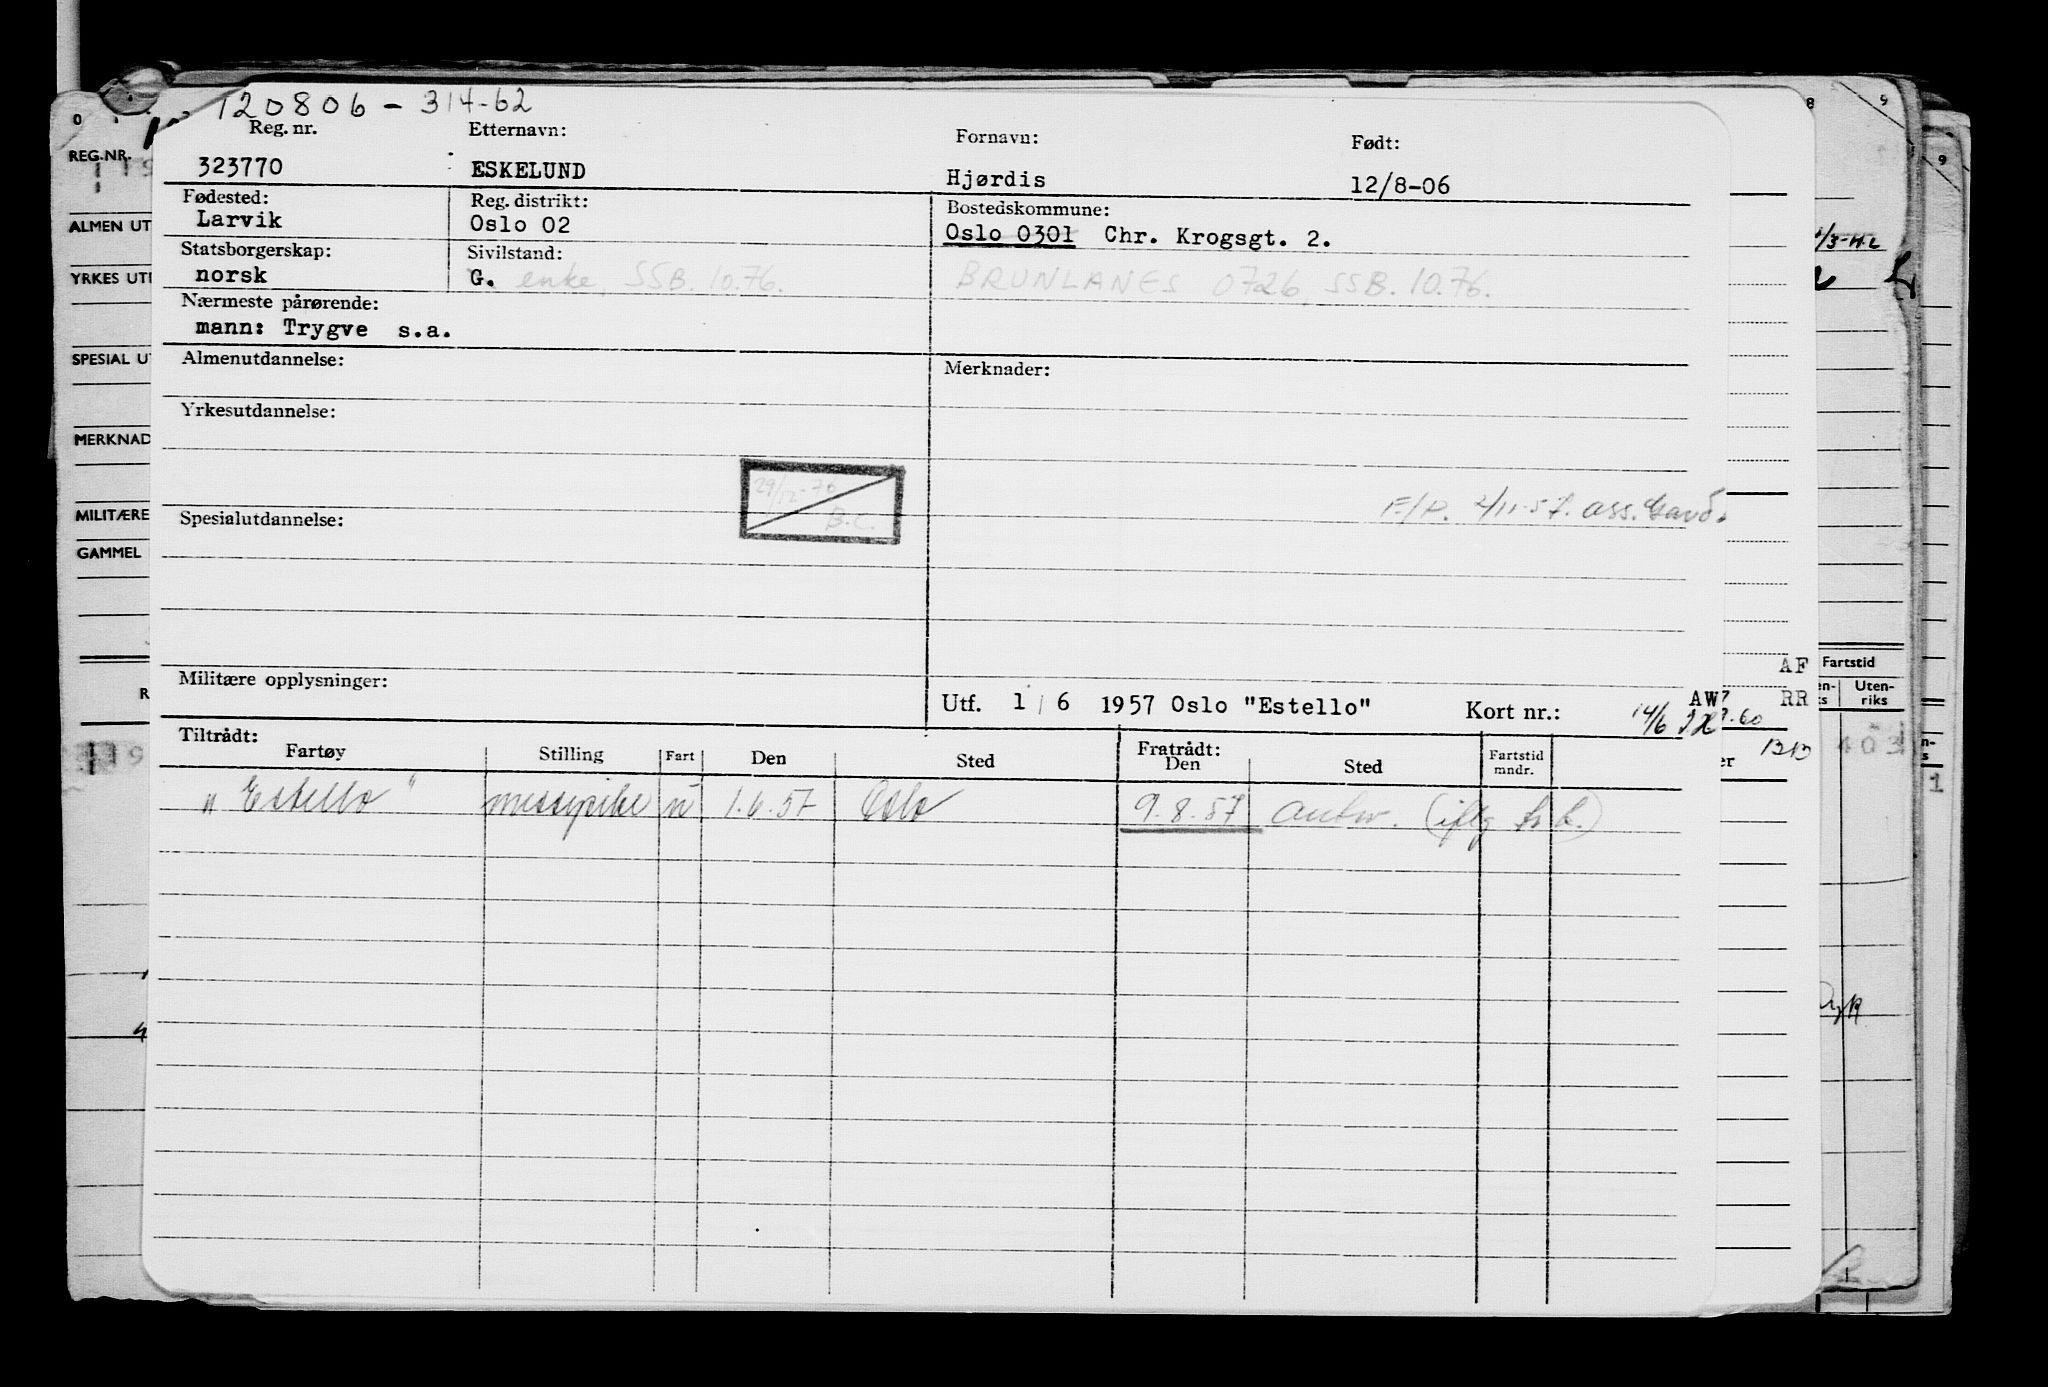 120806 - 314-62
Reg. nr. Etternavn: Fornavn: Født:
323770 ESKELUND Hjørdis 12/8-06
Fødested: Reg. distrikt: Bostedskommune:
Larvik Oslo 02 Oslo 0301 Chr. Krogsgt. 2.
Statsborgerskap: Sivilstand:
norsk G. enke, SSB. 10.76. BRUNLANES 0726, SSB. 10.76.
Nærmeste pårørende:
mann: Trygve s.a.
Almenutdannelse: Merknader:
Yrkesutdannelse:
29/12-76
B.C.
F/P. 2/11-57. ass.
Spesialutdannelse:
Militære opplysninger:
Utf. 1/6 1957 Oslo "Estello" Kort nr.:
Tiltrådt: Fratrådt:
Fartøy Stilling Fart Den Sted Den Sted Fartstid mndr.
"Estello" messepike u 1.6.57 Oslo 9.8.57 Antw. (iflg
REG.NR.
ALMEN UT
YRKES UT
SPESIAL UT
MERKNAD
MILITÆRE
GAMMEL
AF
AW
RR
14/6
Fartstid
Uten-
riks
403
1
8
9
9